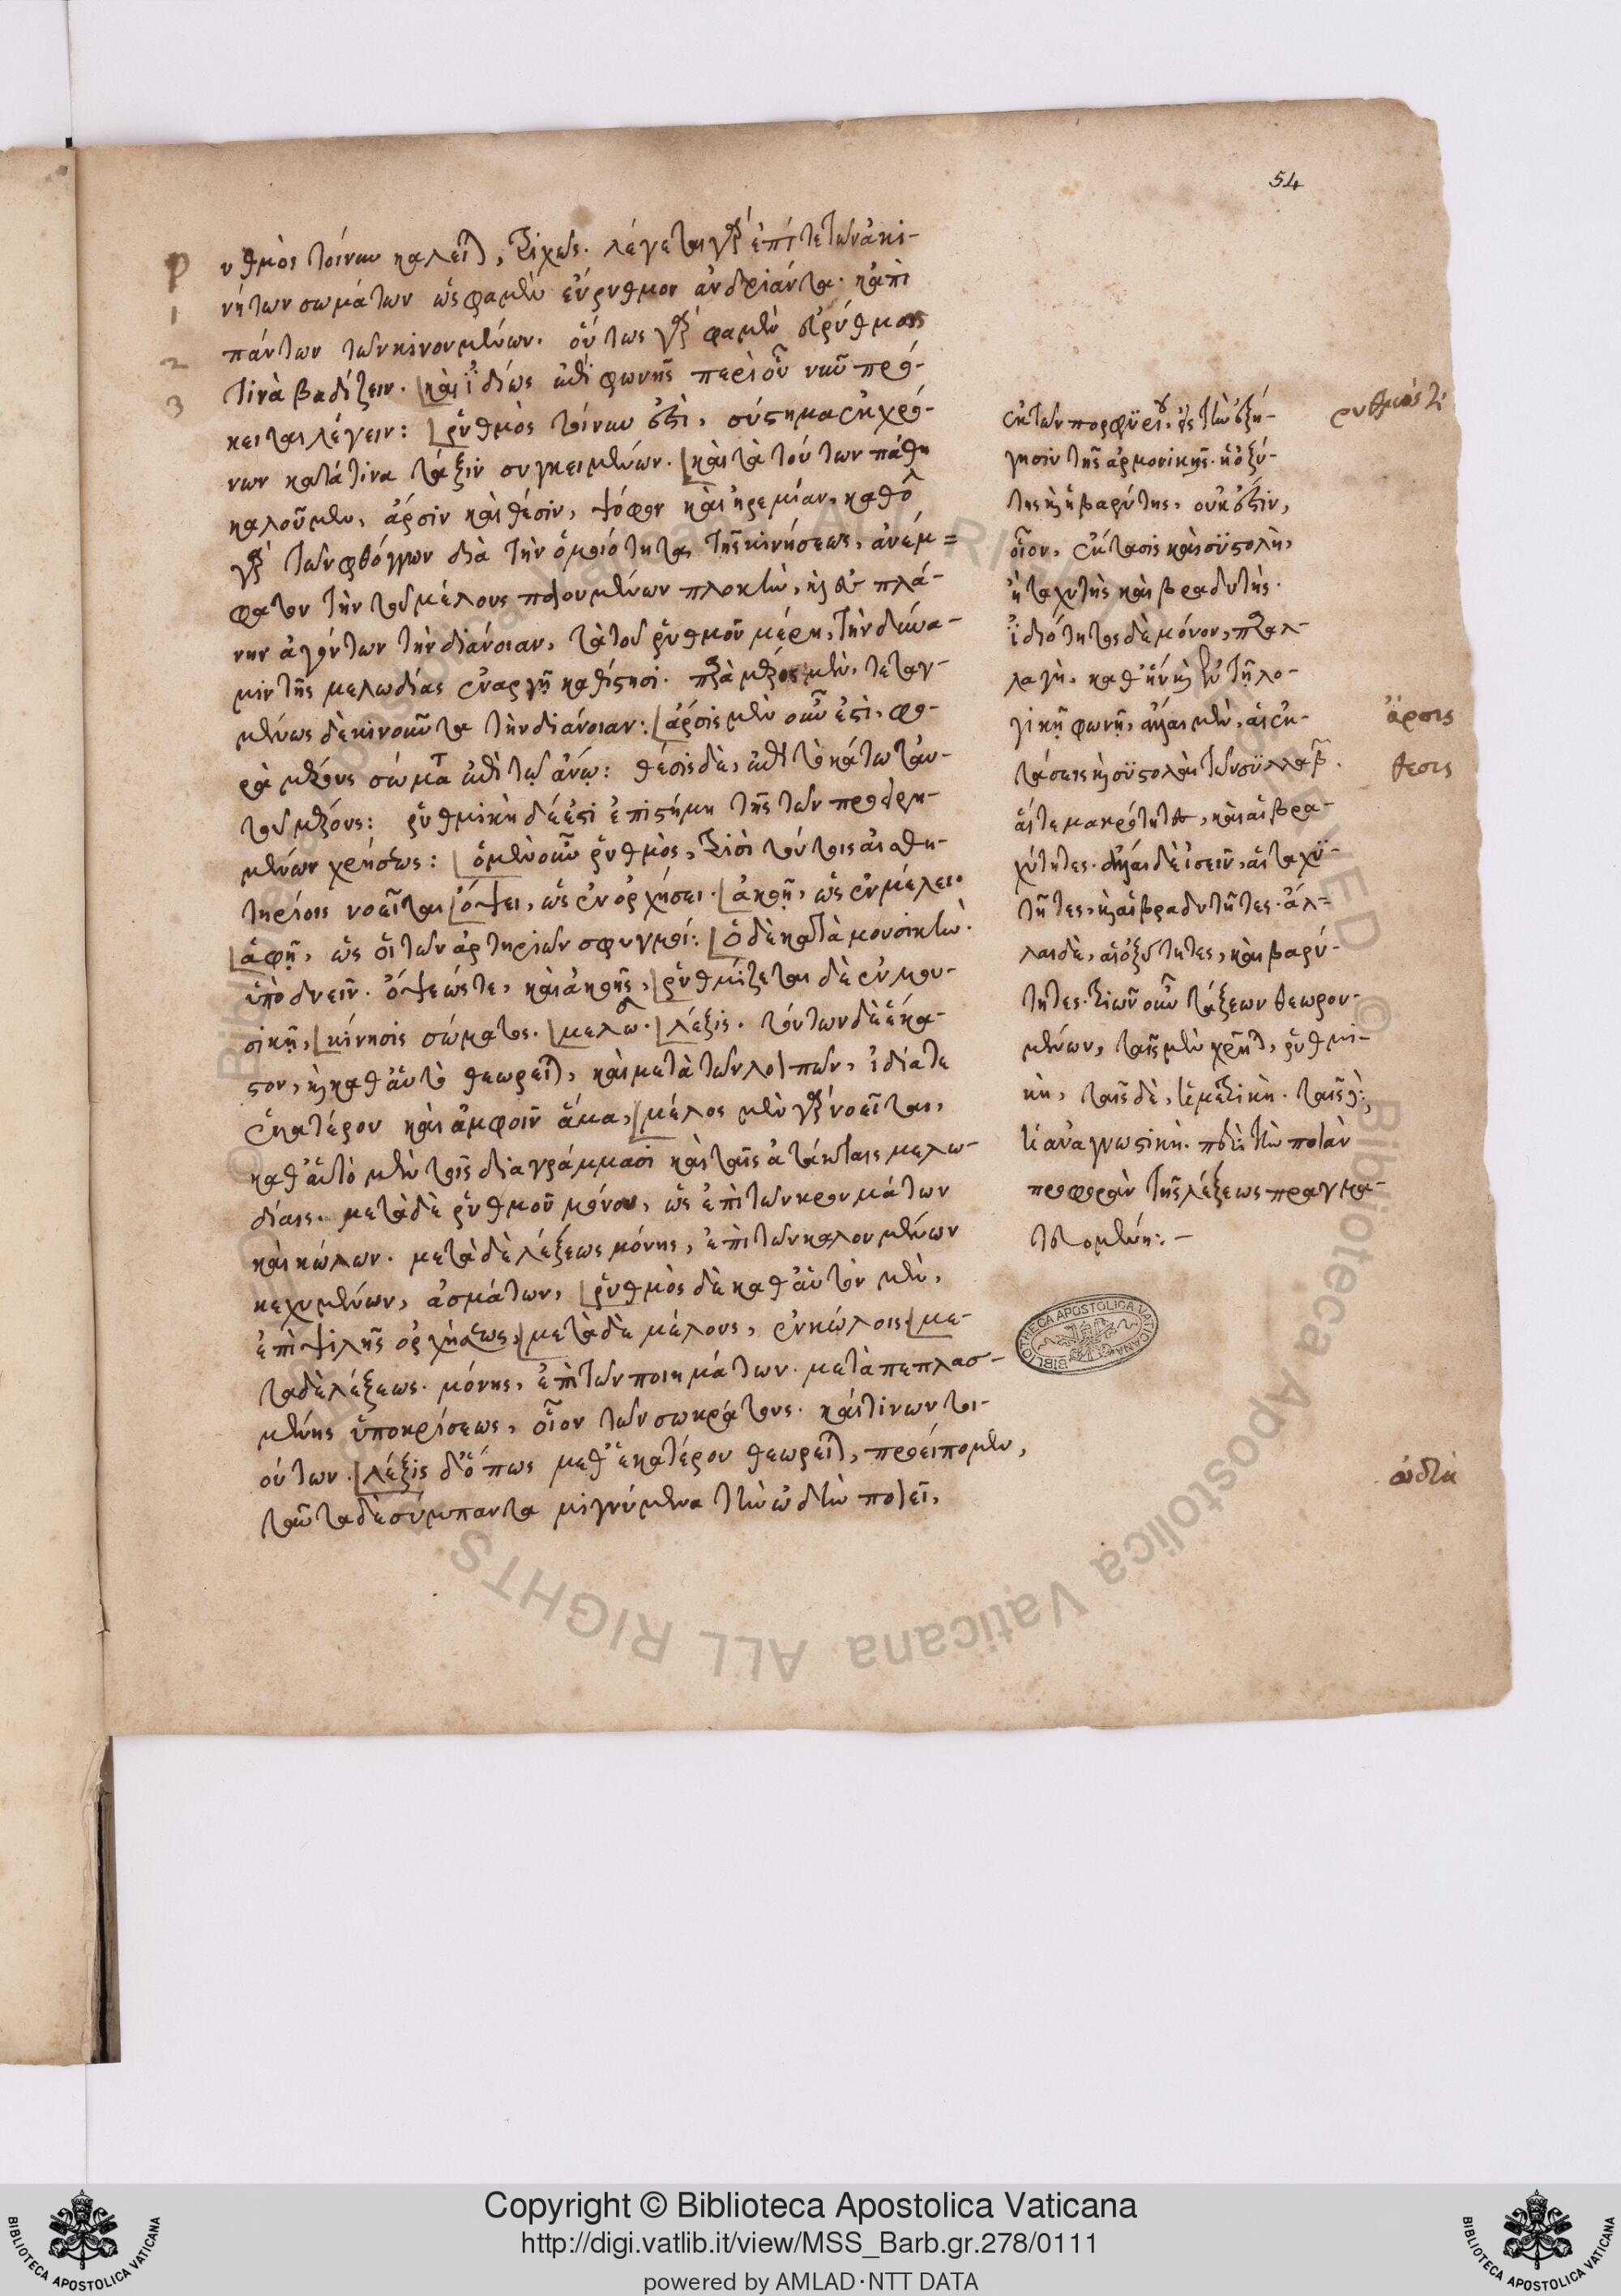 54
ρ
υθμὸς τοίνυν καλεῖται τριχῶς. λέγεται γὰρ ἐπί τε τῶν ἀκι-
1
νήτων σωμάτων ὥς φαμεν εὔρυθμον ἀνδριάντα. κἀπὶ
2
πάντων τῶν κινουμένων. οὕτως γάρ φαμεν εὐρύθμως
3
τινὰ βαδίζειν. καὶ ἰδίως ἐπὶ φωνῆς περὶ οὗ νῦν πρό-
κειται λέγειν: ῥυθμὸς τοίνυν ἐστὶ, σύστημα ἐκ χρό-
νων κατά τινα τάξιν συγκειμένων. καὶ τὰ τούτων πάθη
καλοῦμεν, ἄρσιν καὶ θέσιν, ψόφον καὶ ἠρεμίαν, καθόλου
γὰρ τῶν φθόγγων διὰ τὴν ὁμοιότητα τῆς κινήσεως, ἀνέμ=
φατον τὴν τοῦ μέλους ποιουμένων πλοκὴν, καὶ ἐν πλά-
νην ἀγόντων τὴν διάνοιαν, τὰ τοῦ ῥυθμοῦ μέρη, τὴν δύνα-
μιν τῆς μελωδίας ἐναργῆ καθίστησι. παρὰ μέρος μὲν, τεταγ-
μένως δὲ κινοῦντα τὴν διάνοιαν: ἄρσις μὲν οὖν ἐστι, φο-
ρὰ μέρους σώματος ἐπὶ τῷ ἄνω: θέσις δὲ, ἐπὶ τὸ κάτω ταυ-
τοῦ μέρους: ῥυθμικὴ δέ ἐστι ἐπιστήμη τῆς τῶν προειρη-
μένων χρήσεως: ὁ μὲν οὖν ῥυθμὸς, τρισὶ τούτοις αἰσθη-
τηρίοις νοεῖται ὄψει, ὡς ἐν ὀρχήσει. ἀκοῇ, ὡς ἐν μέλει.
ἁφῇ, ὡς οἱ τῶν ἀρτηριῶν σφυγμοί: ὁ δὲ κατὰ μουσικὴν.
ὑπὸ δυεῖν. ὄψεώς τε, καὶ ἀκοῆς, ῥυθμίζεται δὲ ἐν μου-
σικῇ, κίνησις σώματος. μελῳδία. λέξις. τούτων δὲ ἕκα-
στον, καὶ καθ' αὑτὸ θεωρεῖται, καὶ μετὰ τῶν λοιπῶν, ἰδίᾳ τε
ἑκατέρου καὶ ἀμφοῖν ἅμα, μέλος μὲν γὰρ νοεῖται,
καθ' αὑτὸ μὲν τοῖς διαγράμμασι καὶ ταῖς ἀτάκταις μελω-
δίαις. μετὰ δὲ ῥυθμοῦ μόνου, ὡς ἐπὶ τῶν κρουμάτων
καὶ κώλων. μετὰ δὲ λέξεως μόνης, ἐπὶ τῶν καλουμένων
κεχυμένων, ἀσμάτων, ῥυθμὸς δὲ καθ' αὑτὸν μὲν,
ἐπὶ ψιλῆς ὀρχήσεως, μετὰ δὲ μέλους, ἐν κώλοις. με-
τὰ δὲ λέξεως. μόνης, ἐπὶ τῶν ποιημάτων. μετὰ πεπλασ-
μένης ὑποκρίσεως, οἷον τῶν σωκράτους. καί τινων τοι-
ούτων. λέξις δ' ὅπως μεθ' ἑκατέρου θεωρεῖται, προείπομεν,
ταῦτα δὲ σύμπαντα μιγνύμενα τὴν ᾠδὴν ποιεῖ.
ἐκ τῶν πορφυρίου. εἰς τὴν ἐξή-
γησιν τῆς ἁρμονικῆς. ἡ ὀξύ-
της καὶ ἡ βαρύτης, οὐκ ἔστιν,
οἷον, ἔκτασις καὶ συστολὴ,
ἢ ταχυτὴς καὶ βραδυτής.
ἰδιότητος δὲ μόνον, παραλ-
λαγὴ, καθ' ἣν καὶ ἐν τῇ λο-
γικῇ φωνῇ, ἄλλαι μὲν, αἱ ἐκ-
τάσεις καὶ συστολαὶ τῶν συλλαβῶν.
αἵ τε μακρότητες, καὶ αἱ βρα-
χύτητες. ἄλλαι δέ εἰσιν, αἱ ταχυ-
τῆτες, καὶ αἱ βραδυτῆτες. ἄλ=
λαι δὲ, αἱ ὀξύτητες, καὶ βαρύ-
τητες. τριῶν οὖν τάξεων θεωρου-
μένων, ταῖς μὲν χρῆται, ῥυθμι-
κὴ, ταῖς δὲ, ἡ μετρικὴ. ταῖς δὲ,
ἡ ἀναγνωστικὴ. περὶ τὴν ποιὰν
προφορὰν τῆς λέξεως πραγμα-
τευομένη: -
ρυθμός τί
ἄρσις
θεσις
ᾠδὴ
BIBLIOTHECA APOSTOLICA VATICANA
© Biblioteca Apostolica Vaticana ALL RIGHTS RESERVED
Copyright © Biblioteca Apostolica Vaticana
http://digi.vatlib.it/view/MSS_Barb.gr.278/0111
powered by AMLAD·NTT DATA
BIBLIOTECA APOSTOLICA VATICANA
BIBLIOTECA APOSTOLICA VATICANA